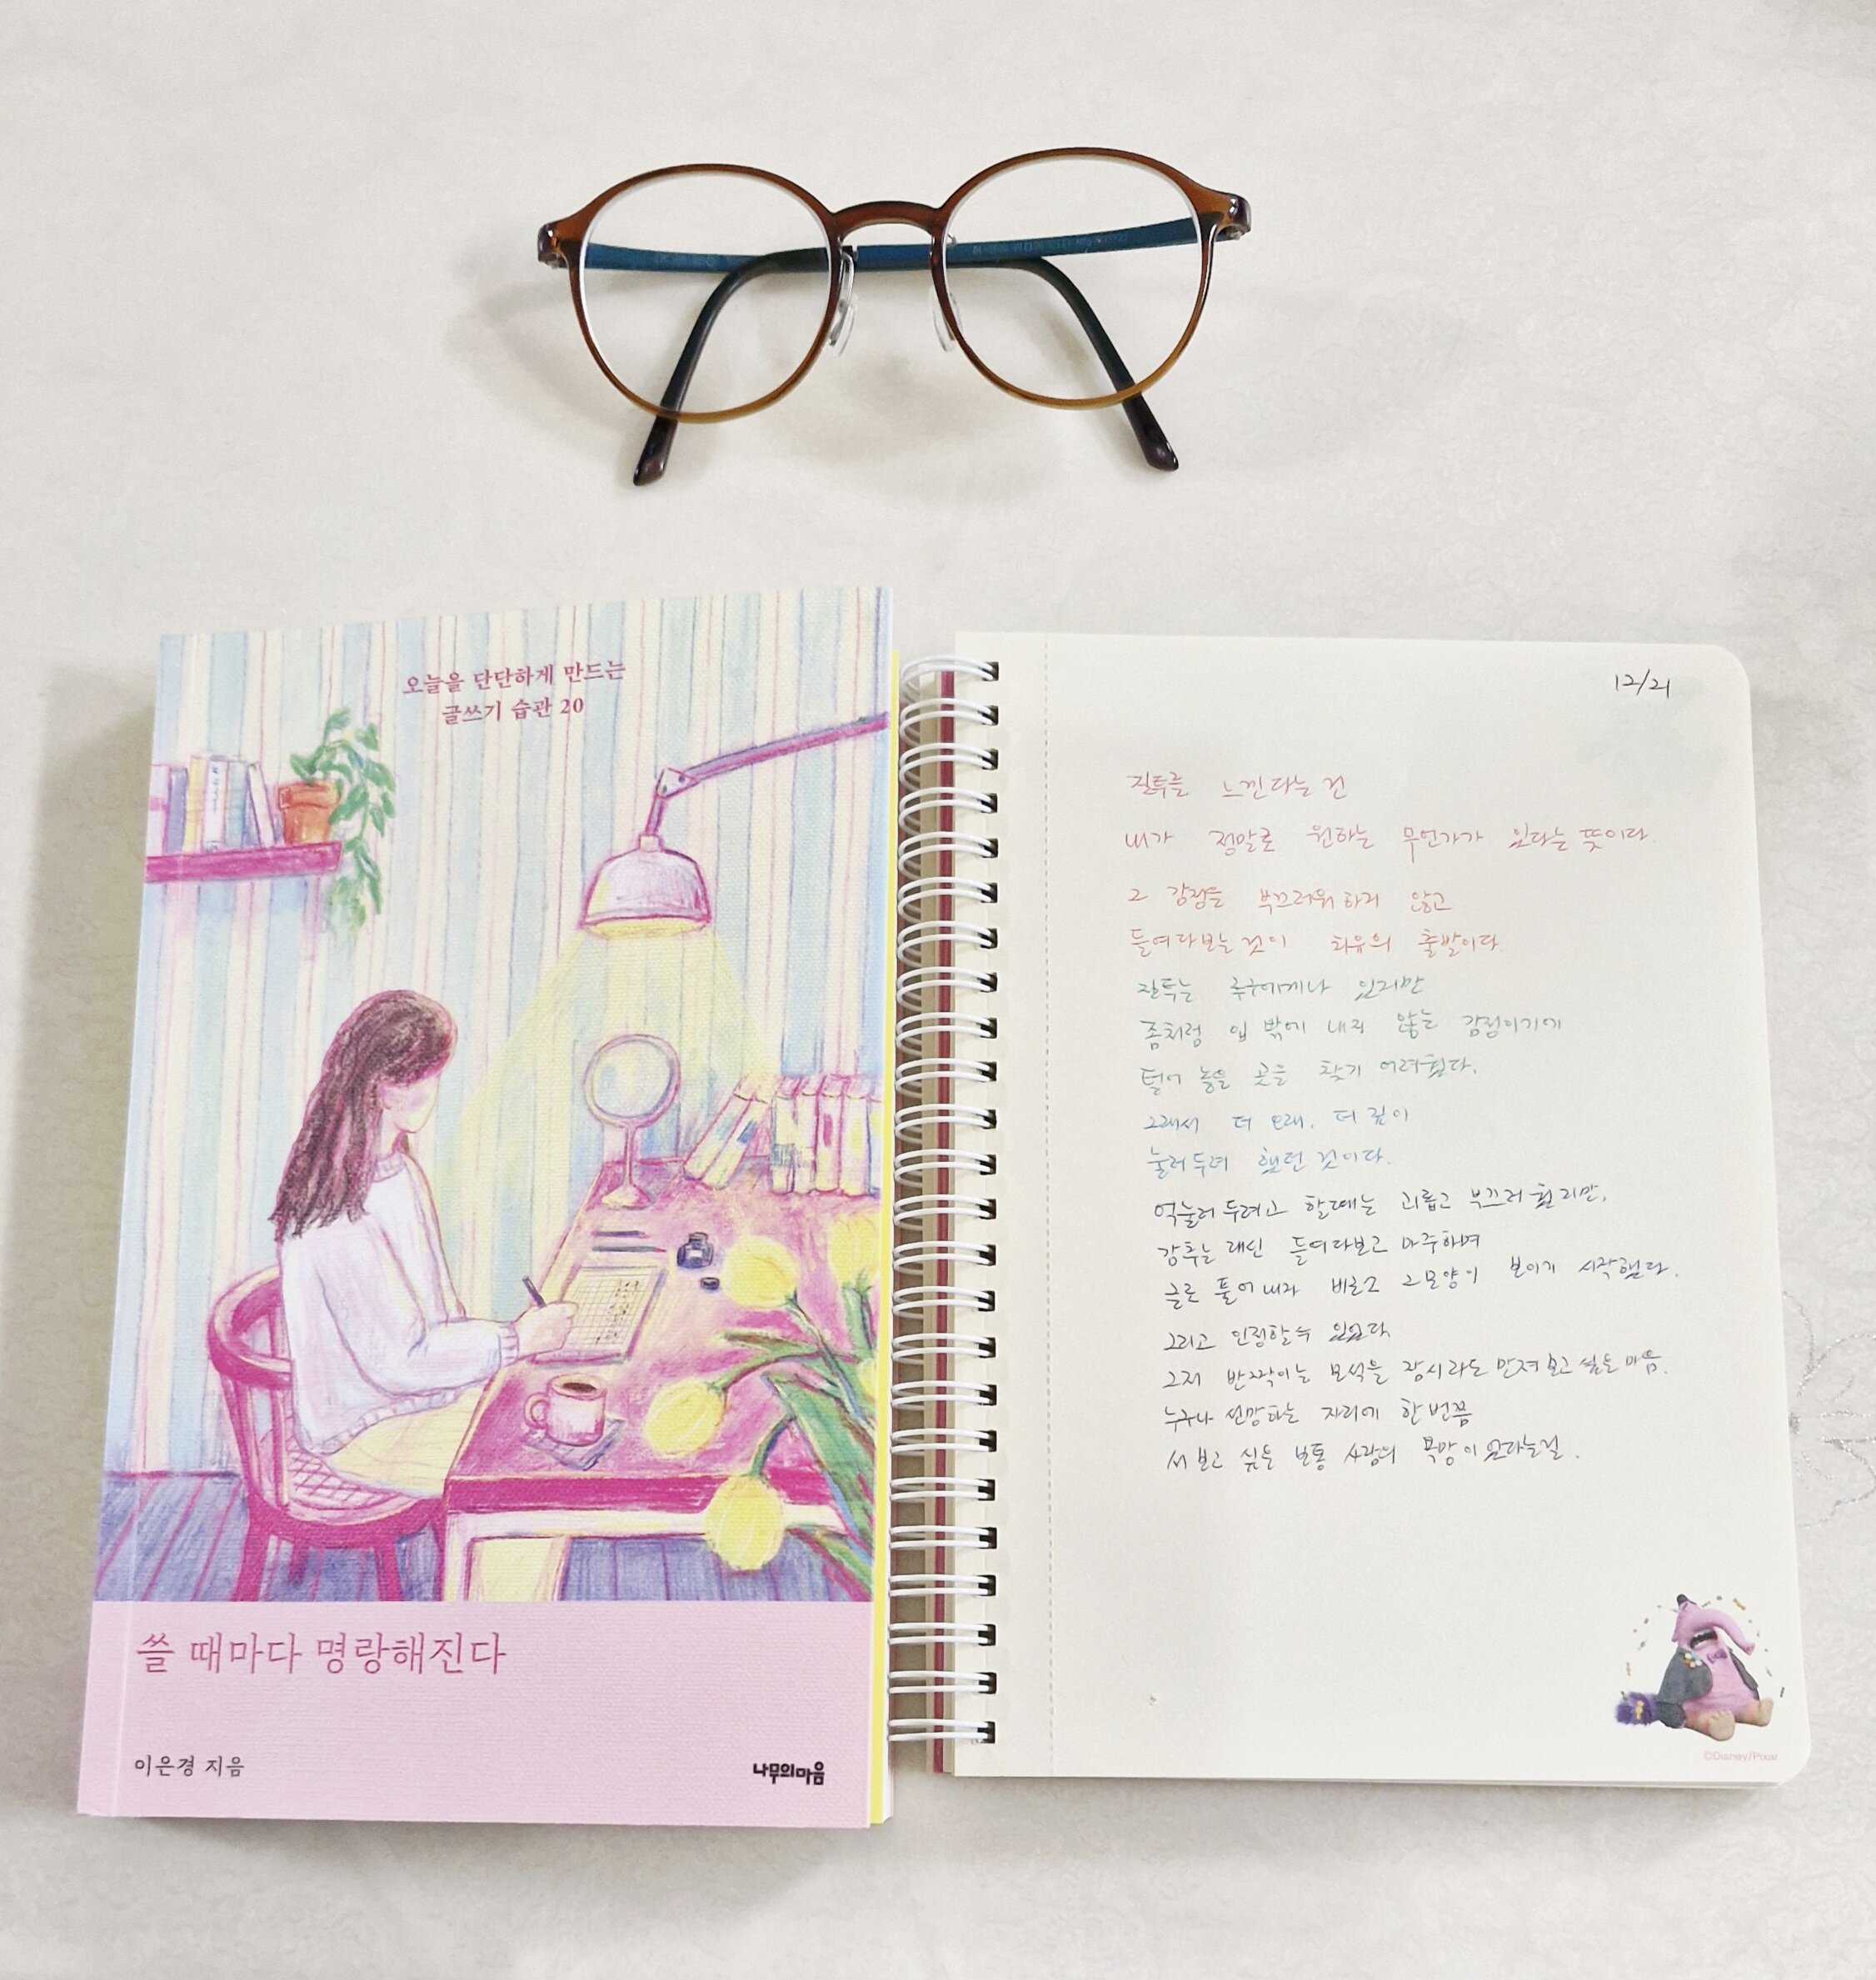 오늘을 단단하게 만드는
글쓰기 습관 20
쓸 때마다 명랑해진다
이은경 지음
나무의마음
12/21
질투를 느낀다는 건
내가 정말로 원하는 무언가가 있다는 뜻이다.
그 감정을 부끄러워 하지 않고
들여다보는 것이 치유의 출발이다.
질투는 누구에게나 있지만
좀처럼 입 밖에 내지 않는 감정이기에
털어 놓을 곳을 찾기 어려웠다.
그래서 더 오래, 더 깊이
눌러두려 했던 것이다.
억눌러 두려고 할때는 괴롭고 부끄러웠지만,
감추는 대신 들여다보고 마주하며
글로 풀어내자 비로소 그 모양이 보이기 시작했다.
그리고 인정할 수 있었다
그저 반짝이는 보석을 잠시라도 만져 보고 싶은 마음.
누구나 선망하는 자리에 한 번쯤
서 보고 싶은 보통 사람의 욕망이 있다는걸.
©Disney/Pixar